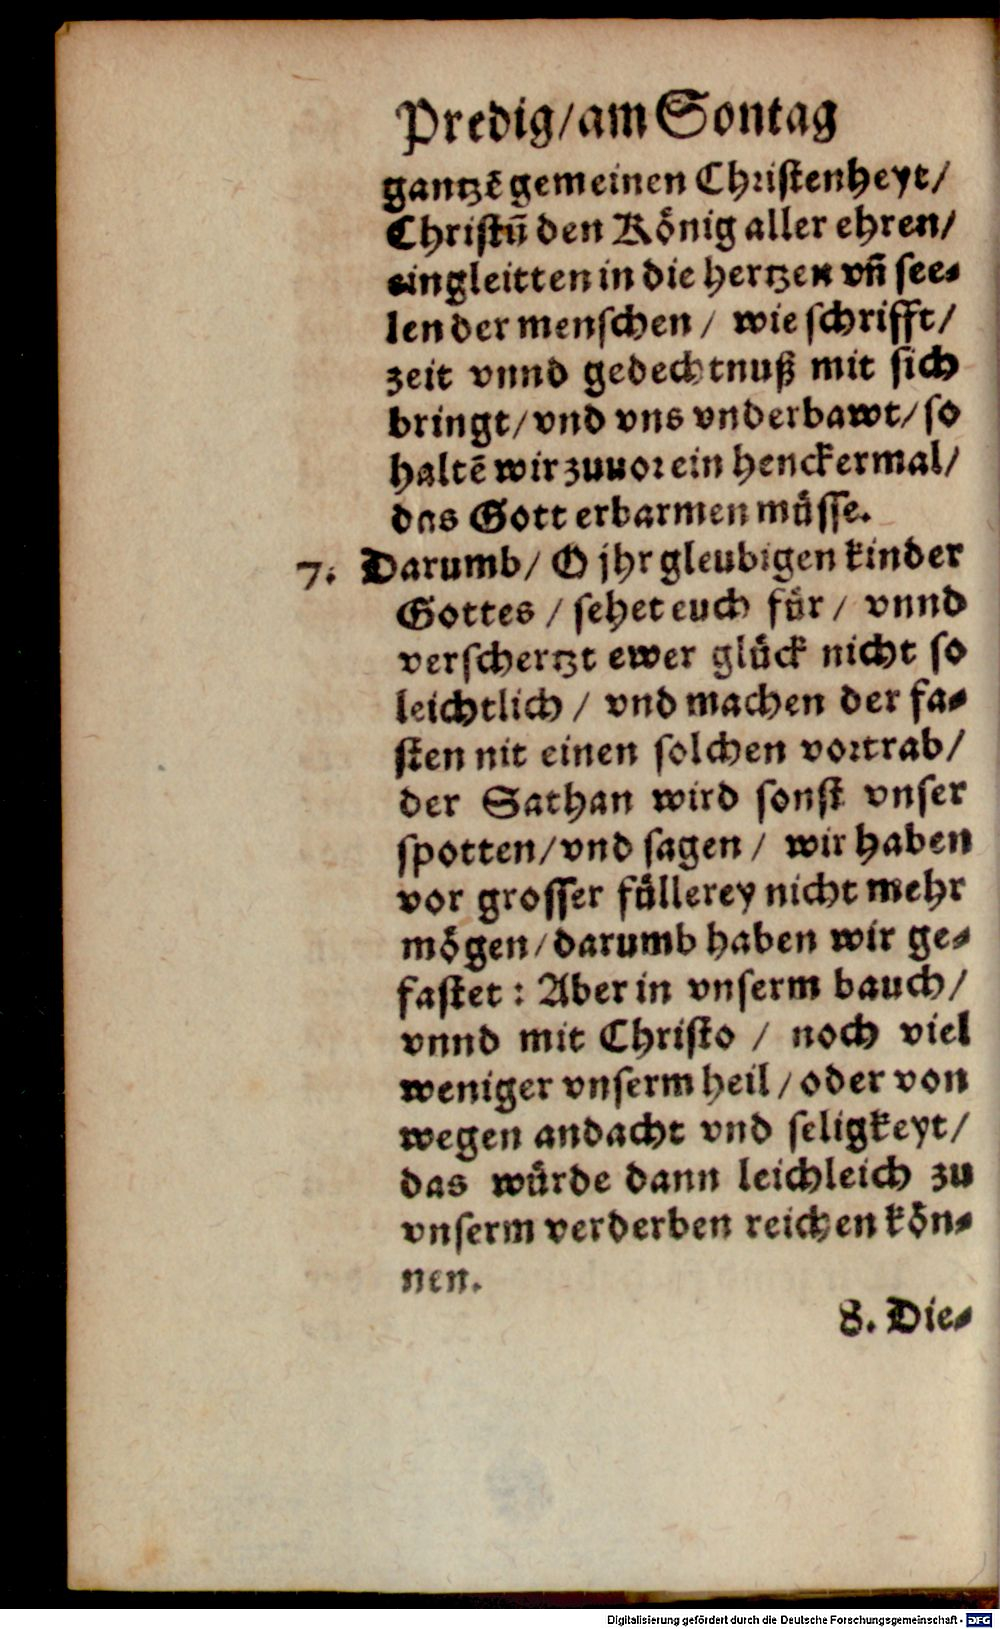 Predig/am Sontag
gantzē gemeinen Christenheyt/
Christū den König aller ehren/
eingleitten in die hertzen vñ see-
len der menschen / wie schrifft/
zeit vnnd gedechtnuß mit sich
bringt/vnd vns vnderbawt/so
haltē wir zuuor ein henckermal/
das Gott erbarmen müsse.
7. Darumb/ O jhr gleubigen kinder
Gottes / sehet euch für / vnnd
verschertzt ewer glück nicht so
leichtlich / vnd machen der fa-
sten nit einen solchen vortrab/
der Sathan wird sonst vnser
spotten/vnd sagen / wir haben
vor grosser füllerey nicht mehr
mögen/darumb haben wir ge-
fastet : Aber in vnserm bauch/
vnnd mit Christo / noch viel
weniger vnserm heil/oder von
wegen andacht vnd seligkeyt/
das würde dann leichleich zu
vnserm verderben reichen kön-
nen.
8. Die-
Digitalisierung gefördert durch die Deutsche Forschungsgemeinschaft - DFG